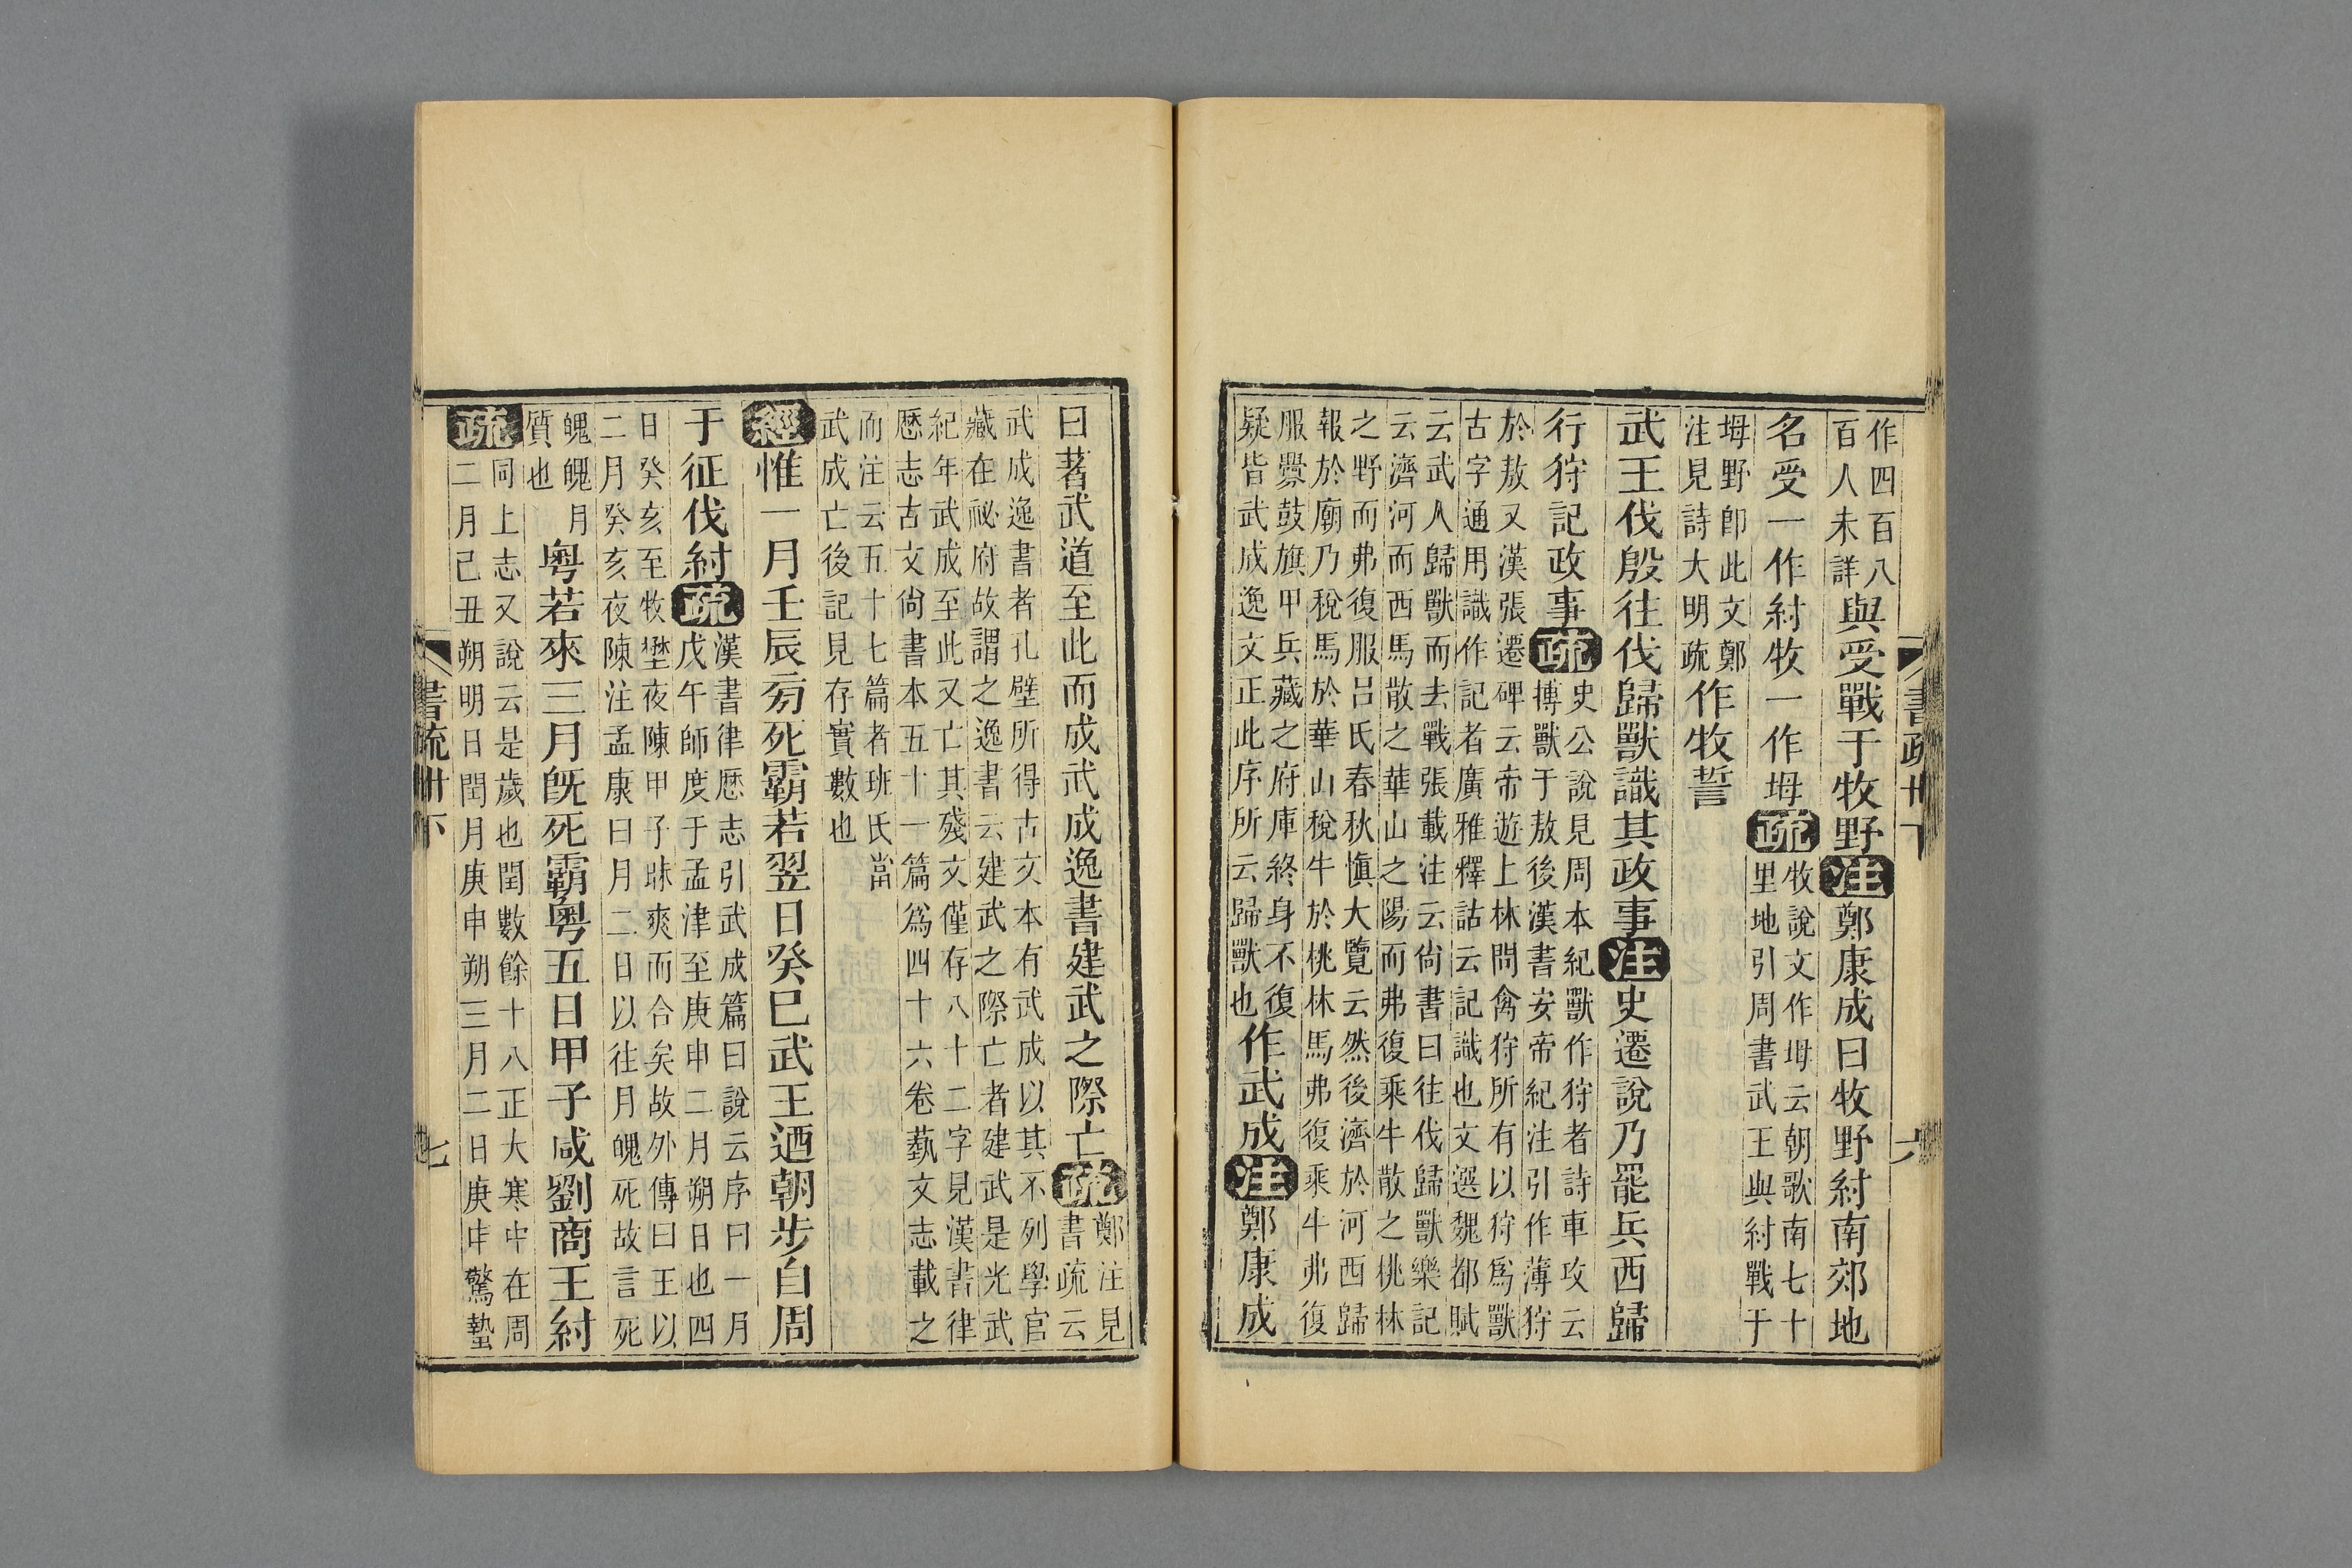 作四百八
百人未詳與受戰于牧野注鄭康成曰牧野紂南郊地
名受一作紂牧一作坶疏牧說文作坶云朝歌南七十
里地引周書武王與紂戰于
坶野卽此文鄭
注見詩大明疏作牧誓
武王伐殷往伐歸獸識其政事注史遷說乃罷兵西歸
行狩記政事疏史公說見周本紀獸作狩者詩車攻云
搏獸于敖後漢書安帝紀注引作薄狩
於敖又漢張遷碑云帝遊上林問禽狩所有以狩爲獸
古字通用識作記者廣雅釋詁云記識也文選魏都賦
云武人歸獸而去戰張載注云尙書曰往伐歸獸樂記
云濟河而西馬散之華山之陽而弗復乘牛散之桃林
之野而弗復服呂氏春秋慎大覽云然後濟於河西歸
報於廟乃稅馬於華山稅牛於桃林馬弗復乘牛弗復
服釁鼓旗甲兵藏之府庫終身不復
疑皆武成逸文正此序所云歸獸也作武成注鄭康成
書疏卅下
六
曰著武道至此而成武成逸書建武之際亡疏鄭注見
書疏云
武成逸書者孔壁所得古文本有武成以其不列學官
藏在祕府故謂之逸書云建武之際亡者建武是光武
紀年武成至此又亡其殘文僅存八十二字見漢書律
歷志古文尙書本五十一篇爲四十六卷蓺文志載之
而注云五十七篇者班氏當
武成亡後記見存實數也
經惟一月壬辰㫄死霸若翌日癸巳武王迺朝步自周
于征伐紂疏漢書律歷志引武成篇曰說云序曰一月
戊午師度于孟津至庚申二月朔日也四
日癸亥至牧壄夜陳甲子昧爽而合矣故外傳曰王以
二月癸亥夜陳注孟康曰月二日以往月魄死故言死
魄魄月
質也粵若來三月旣死霸粵五日甲子咸劉商王紂
疏同上志又說云是歲也閏數餘十八正大寒中在周
二月己丑朔明日閏月庚申朔三月二日庚申驚蟄
書疏卅下
七